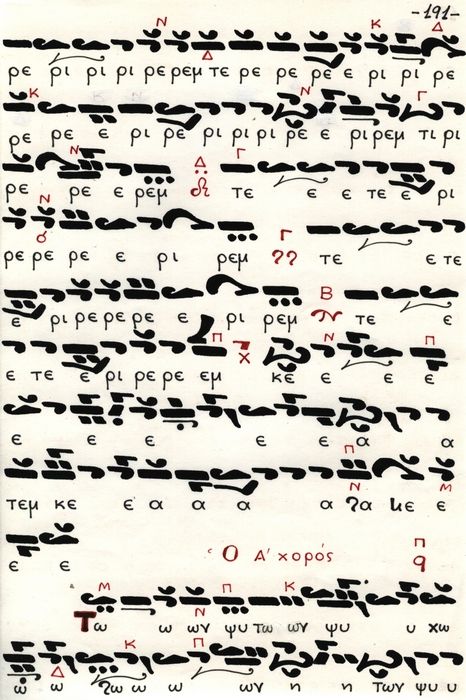 -191-
Ν Κ Δ
Δ
ρε ρι ρι ρι ρε ρεμ τε ρε ρε ρε ε ρι ρι ρε
Κ Ν Γ
ρε ρε ε ρι ρε ρι ρι ρι ρε ε ρι ρεμ τι ρι
Ν Δ Γ
ρε ρε ε ρεμ τε ε ε τε ε ρι
Ν
ρε ρε ρε ε ρι ρεμ Γ τε ε τε
Β
ε ρι ρε ρε ρε ε ρι ρεμ τε ε
Π Ν Π
ε τε ε ρι ρε ρε εμ χ κε ε ε ε
ε ε ε ε ε α α
Π
Ν Μ
τεμ κε ε α α α α ε
ε ε
Ὁ Α΄ χορός Π
Μ Π Κ
Ν
Τω ω ων ψυ τω ων ψυ υ χω
Κ Π
Δ
ω ω ω ω ων η η των ψυ υ